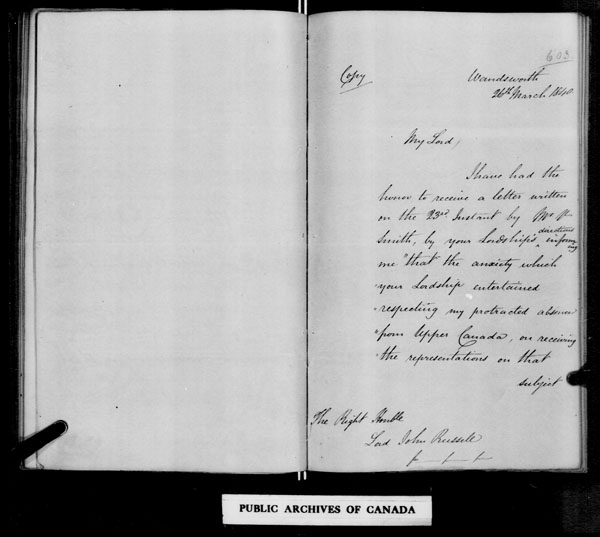 603
Copy
Wandsworth
26th March 1840
My Lord,
I have had the
honor to receive a letter written
on the 23rd Instant by Mr
Smith, by your Lordship's directions informing
me "that the anxiety which
"your Lordship entertained
"respecting my protracted absence
"from Upper Canada, on receiving
"the representations on that
subject
The Right Honble
Lord John Russell
PUBLIC ARCHIVES OF CANADA